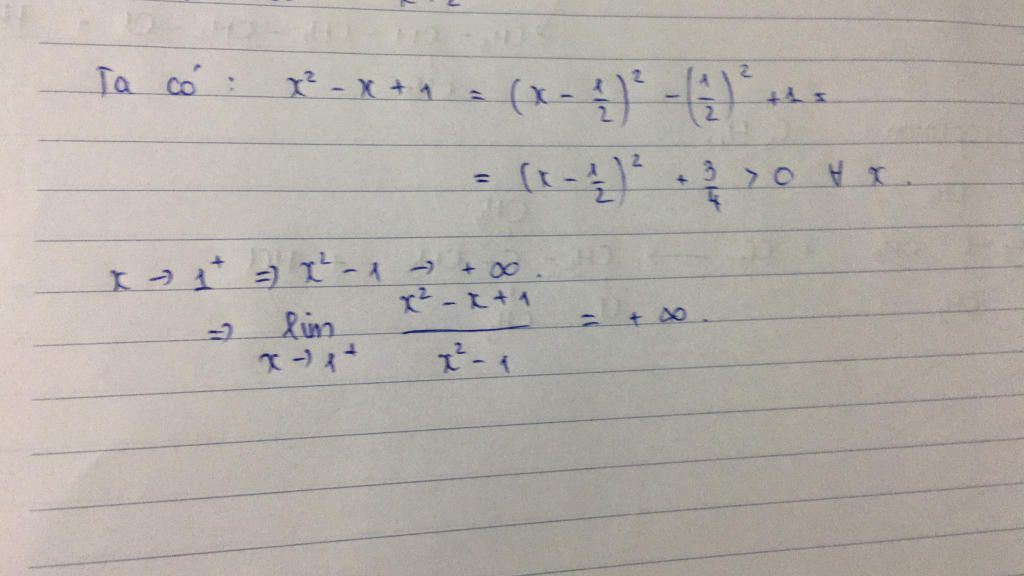 Ta có : x² - x + 1 = (x - 1/2)² - (1/2)² + 1 =
= (x - 1/2)² + 3/4 > 0 ∀ x .
x → 1⁺ ⇒ x² - 1 → + ∞ .
⇒ lim x → 1⁺ (x² - x + 1)/(x² - 1) = + ∞ .